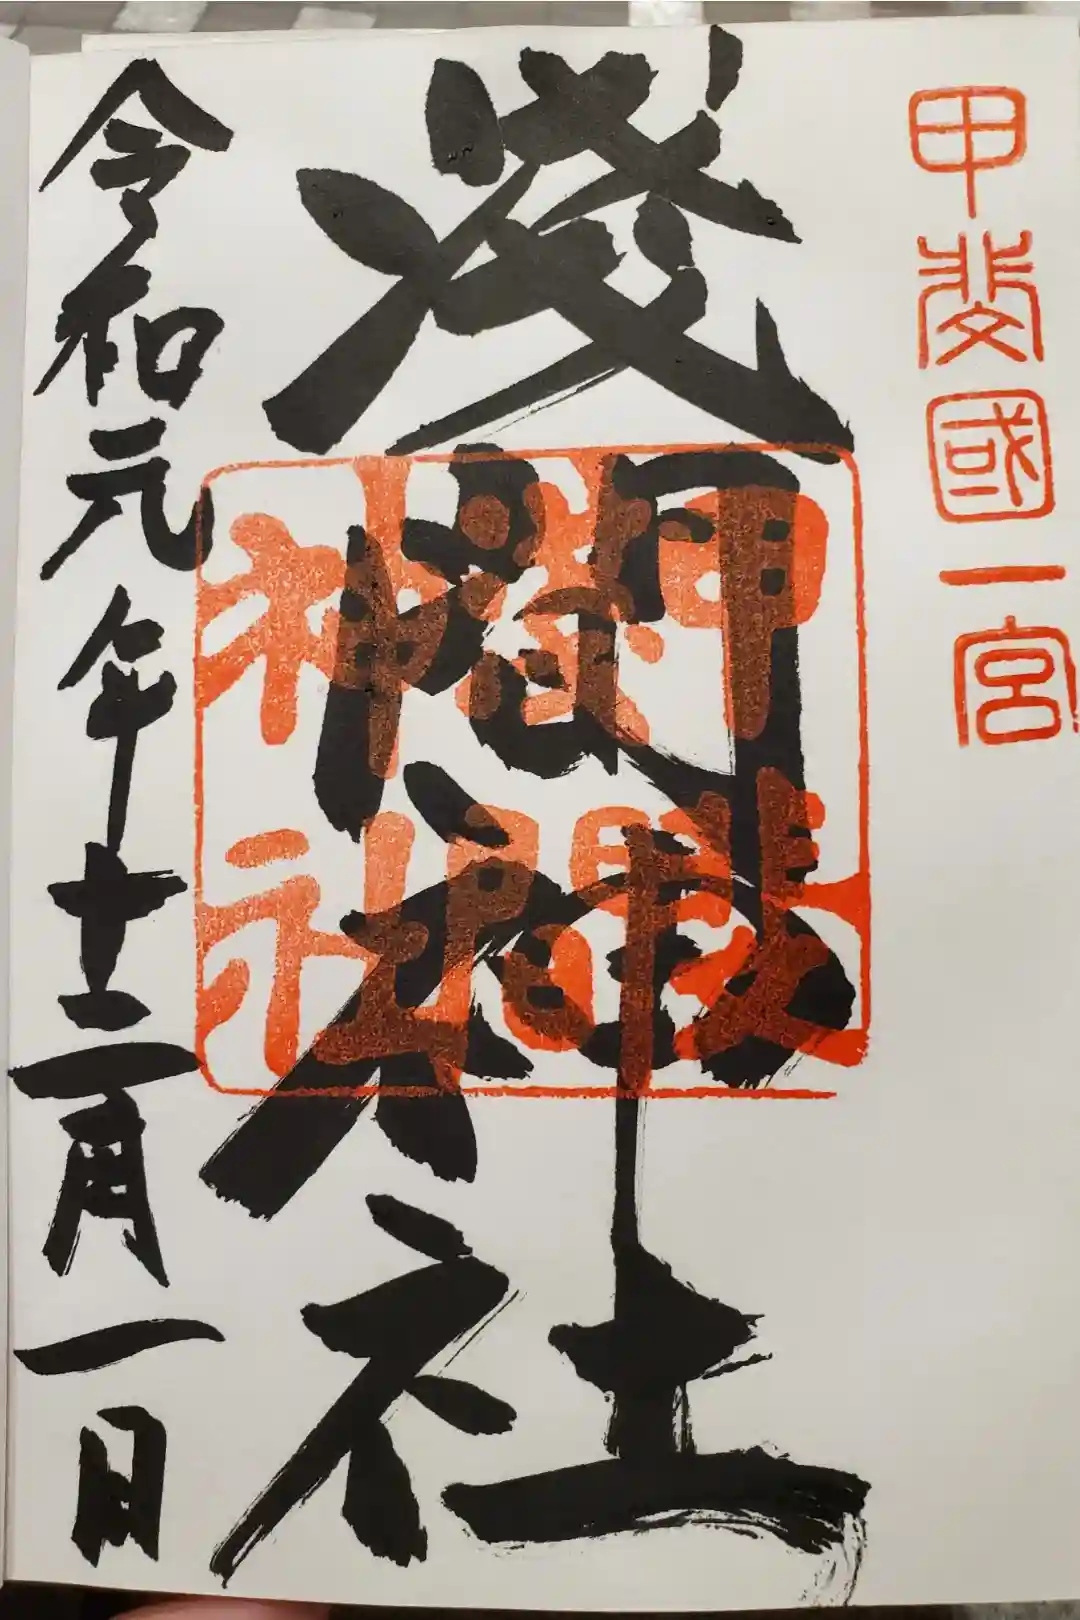 甲斐國一宮
淺間神社
甲斐
淺間
神社
令和元年十二月一日